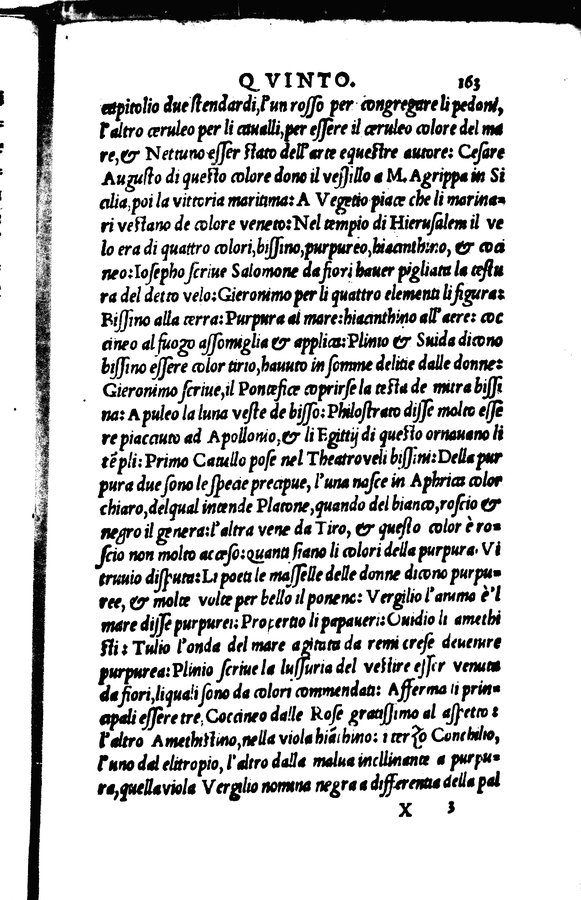 QVINTO. 163
capitolio due stendardi,l'un rosso per congregare li pedoni,
l'altro ceruleo per li caualli,per essere il ceruleo colore del ma
re,& Nettuno esser stato dell'arte equestre autore: Cesare
Augusto di questo colore dono il vessillo a M. Agrippa in Si
cilia,poi la vittoria maritima: A Vegetio piace che li marina-
ri vestano de colore veneto: Nel tempio di Hierusalem il ve
lo era di quattro colori,bissino,purpureo,hiacinthino, & coci
neo: Iosepho scriue Salomone da fiori hauer pigliata la testu
ra del detto velo: Gieronimo per li quattro elementi li figura:
Bissino alla terra: Purpura al mare: hiacinthino all'aere: coc
cineo al fuogo assomiglia & applica: Plinio & Suida dicono
bissino essere color tirio,hauuto in somme delitie dalle donne:
Gieronimo scriue,il Pontefice coprirse la testa de mitra bissi
na: Apuleo la luna veste de bisso: Philostrato disse molto esse
re piacciuto ad Apollonio,& li Egittij di questo ornauano li
tēpli: Primo Catullo pose nel Theatro veli bissini: Della pur
pura due sono le specie precipue, l'una nasce in Aphrica color
chiaro,del qual intende Platone,quando del bianco,roscio &
negro il genera: l'altra vene da Tiro, & questo color è ro-
scio non molto acceso: quanti siano li colori della purpura. Vi
truuio disputa: Li poeti le masselle delle donne dicono purpu-
ree, & molte volte per bello il ponenc: Vergilio l'animo è'l
mare disse purpurei: Propertio li papaueri: Ouidio li amethi
sti: Tulio l'onda del mare agitata da remi crese deuenire
purpurea: Plinio scriue la lussuria del vestire esser venuta
da fiori,liquali sono da colori commendati: Afferma li prin-
cipali essere tre, Coccineo dalle Rose gratissimo al aspetto:
l'altro Amethistino,nella viola hiācinbino: i terzo Conchilio,
l'uno dal elitropio, l'altro dalla malua incllinante a purpu-
ra,quella viola Vergilio nomina negra a differentia della pal
X 3